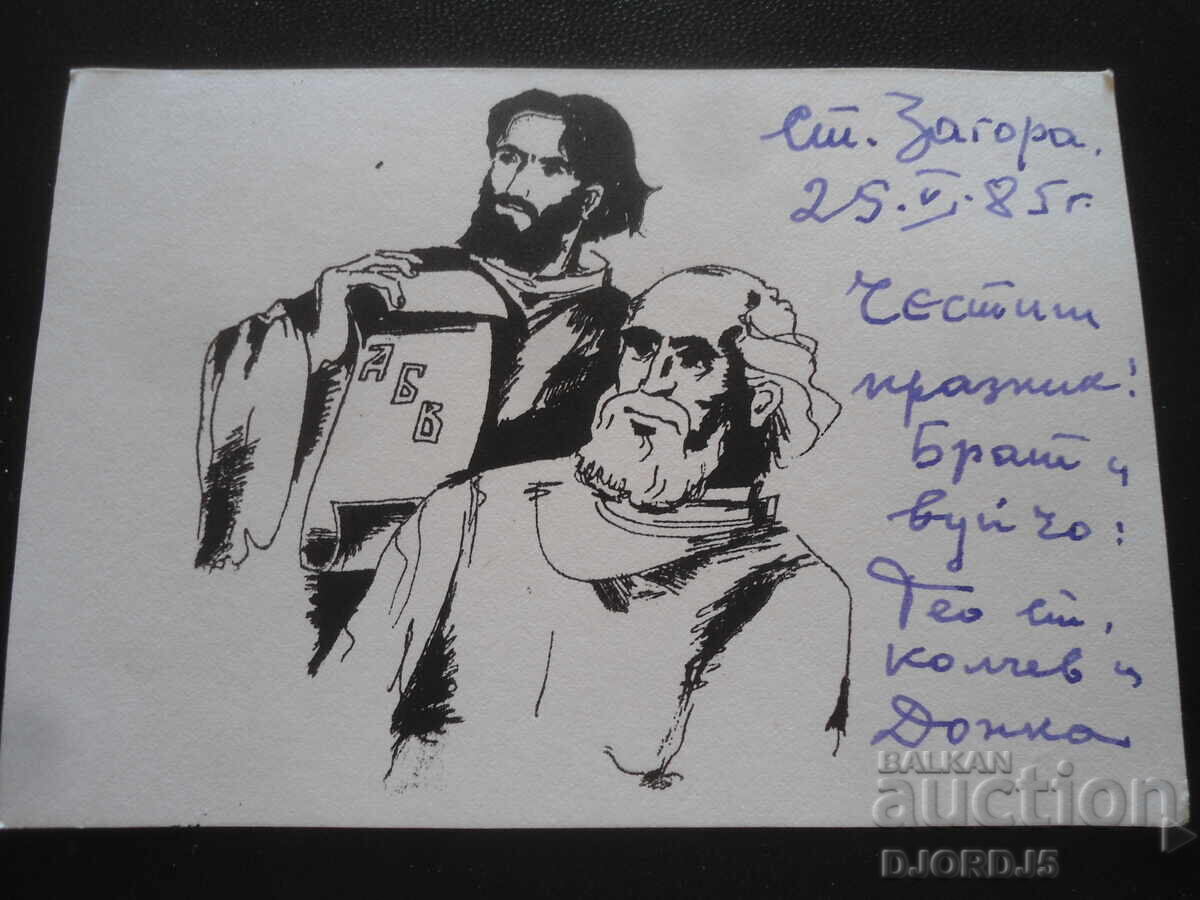 Ст. Загора,
25.V.85г.
Честит
празник!
Брат и
вуйчо:
Тео ст.
Колчев и
Донка
А
Б
В
BALKAN
auction
DJORDJ5